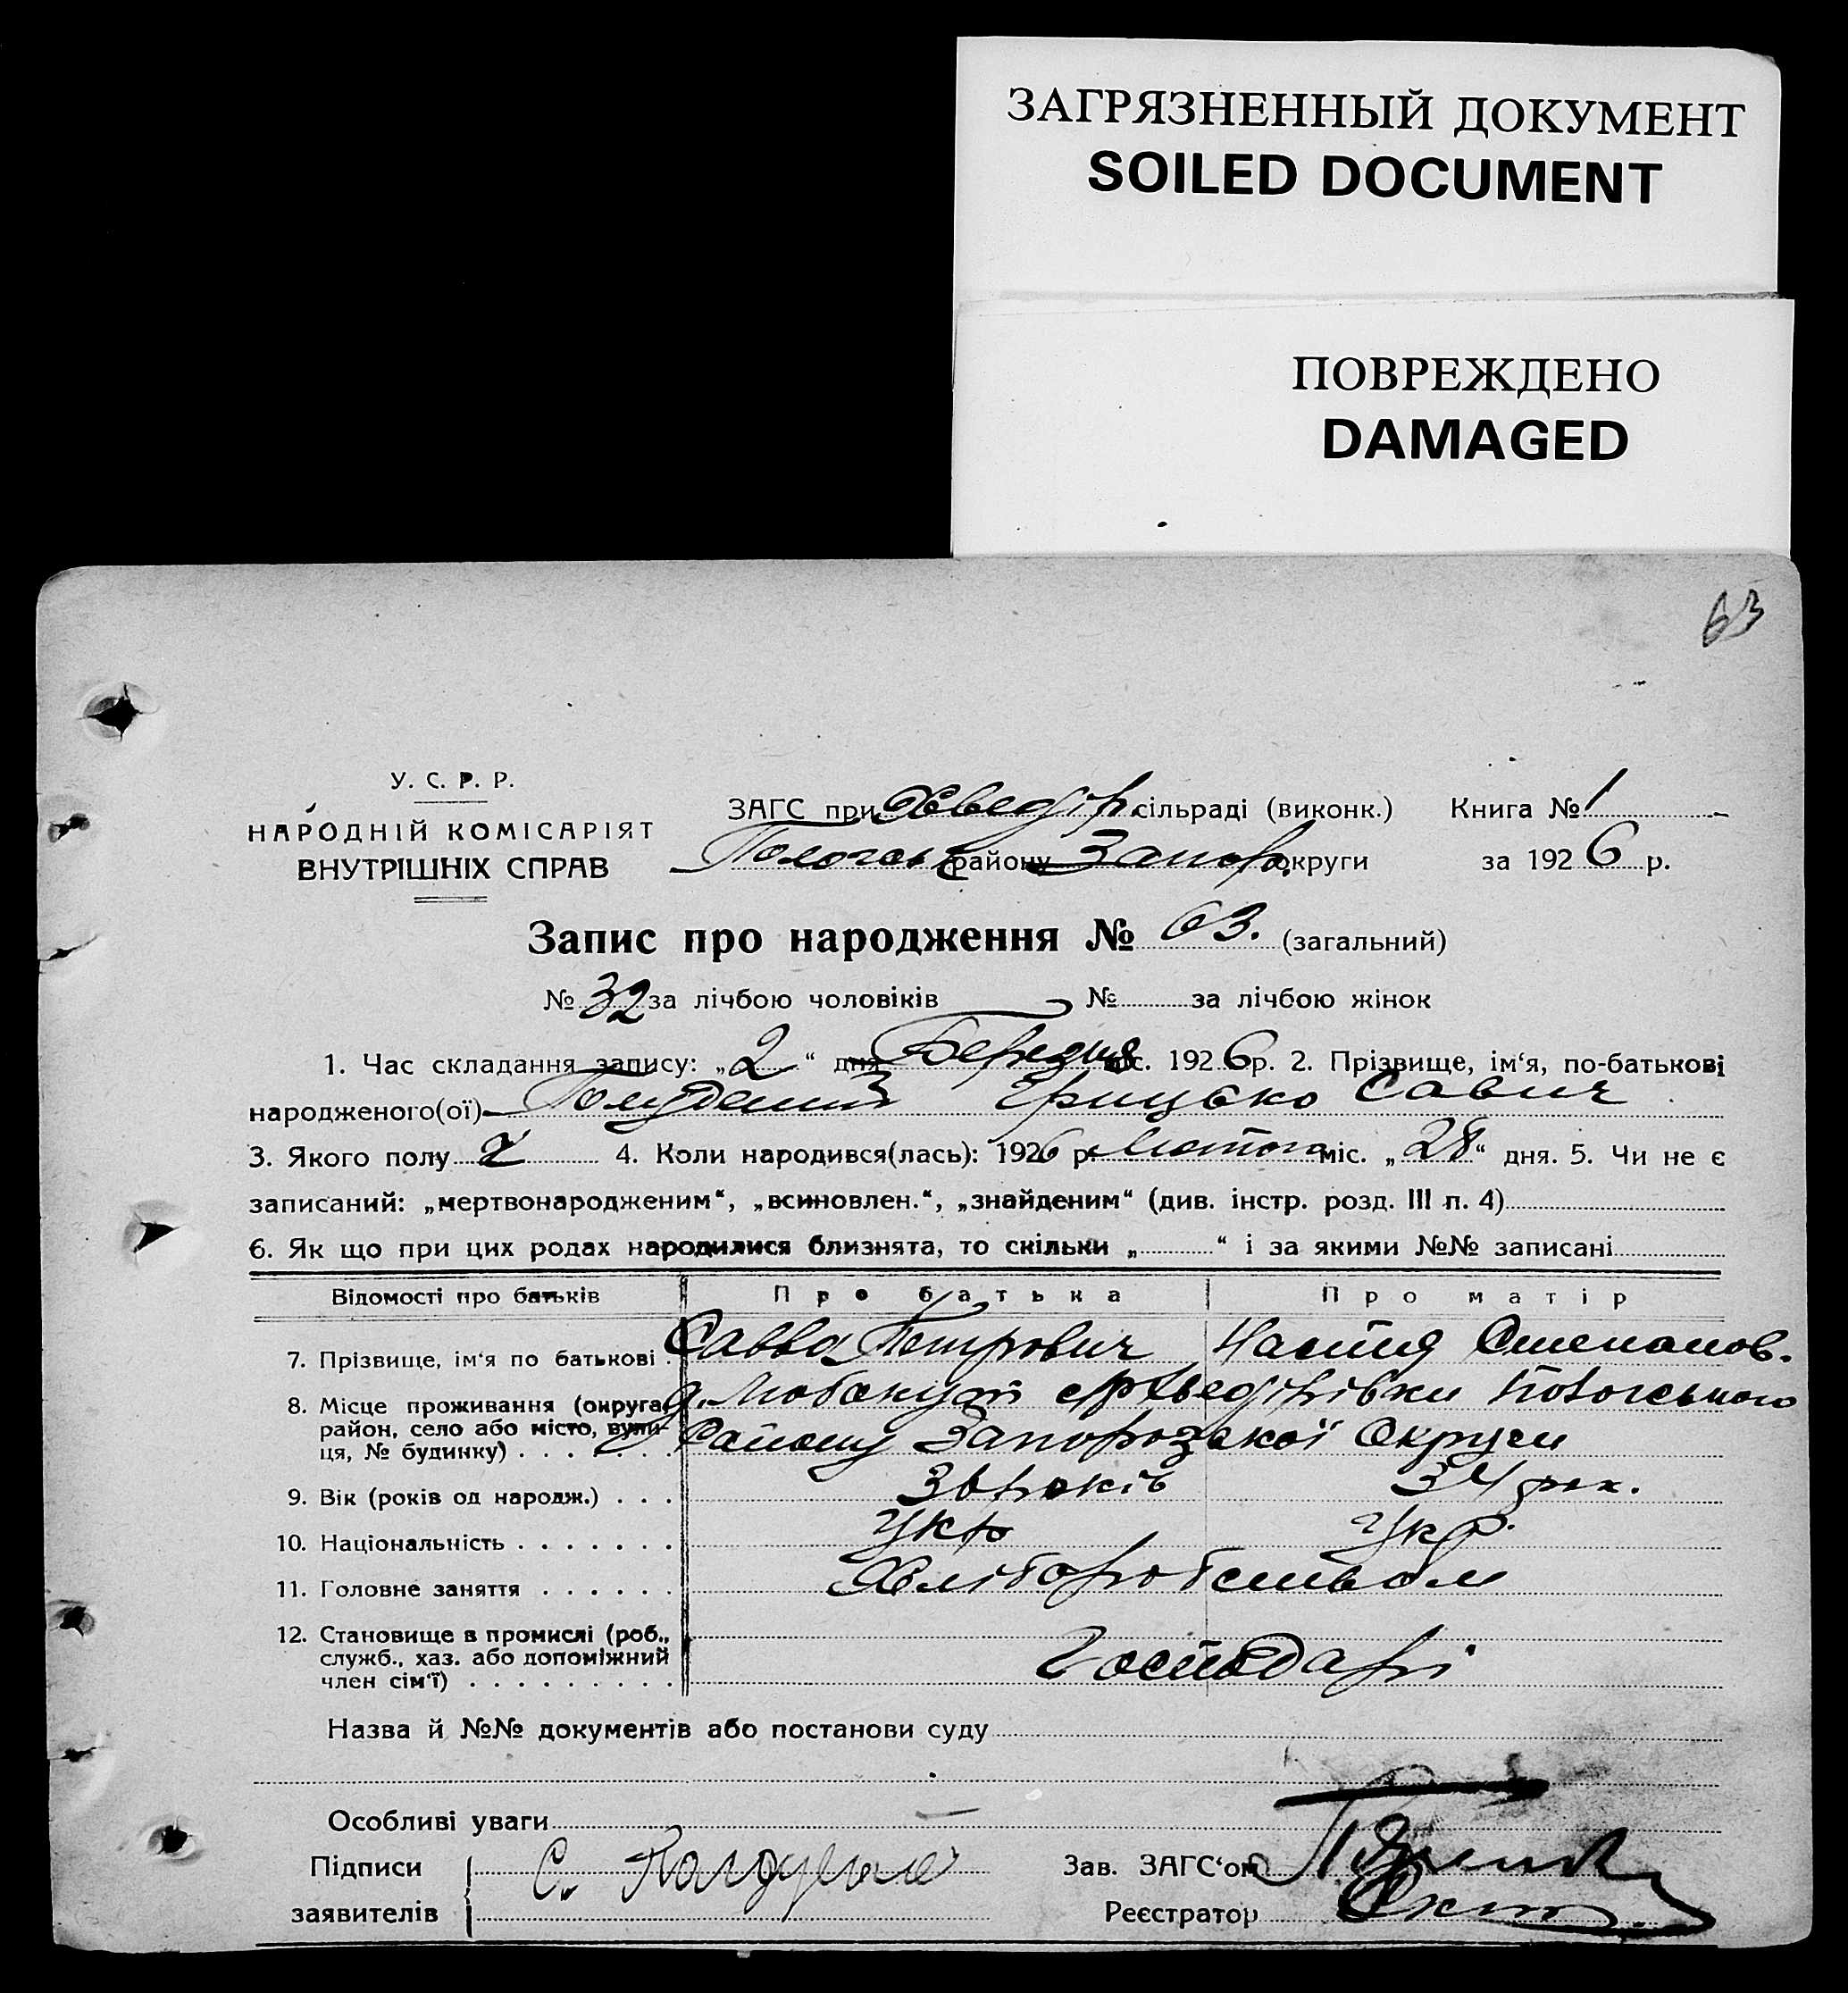 ЗАГРЯЗНЕННЫЙ ДОКУМЕНТ
SOILED DOCUMENT
ПОВРЕЖДЕНО
DAMAGED
63
У. С. Р. Р.
НАРОДНІЙ КОМІСАРІЯТ
ВНУТРІШНІХ СПРАВ
ЗАГС при Хведір. сільраді (виконк.) Книга № 1
Пологськ району Запор. округи за 1926 р.
Запис про народження № 63. (загальний)
№ 32 за лічбою чоловіків № за лічбою жінок
1. Час складання запису: „2“ дня Березня міс. 1926 р. 2. Прізвище, ім‘я, по-батькові
народженого(ої) Грицько Савич
3. Якого полу ч 4. Коли народився(лась): 1926 р. Лютого міс. „28“ дня. 5. Чи не є
записаний: „мертвонародженим“, „всиновлен.“, „знайденим“ (див. інстр. розд. III п. 4)
6. Як що при цих родах народилися близнята, то скільки „ “ і за якими №№ записані
Відомості про батьків Про батька Про матір
7. Прізвище, ім‘я по батькові Савва Петрович Настя Степанов.
8. Місце проживання (округа, район, село або місто, вулиця, № будинку) Хведірівки Пологського
Району Запорозької Округи
9. Вік (років од народж.) 36 років 34 рок.
10. Національність Укр Укр.
11. Головне заняття Хліборобством
12. Становище в промислі (роб., служб., хаз. або допоміжний член сім‘ї) Господарі
Назва й №№ документів або постанови суду
Особливі уваги —
Підписи
заявителів С.
Зав. ЗАГС‘ом
Реєстратор